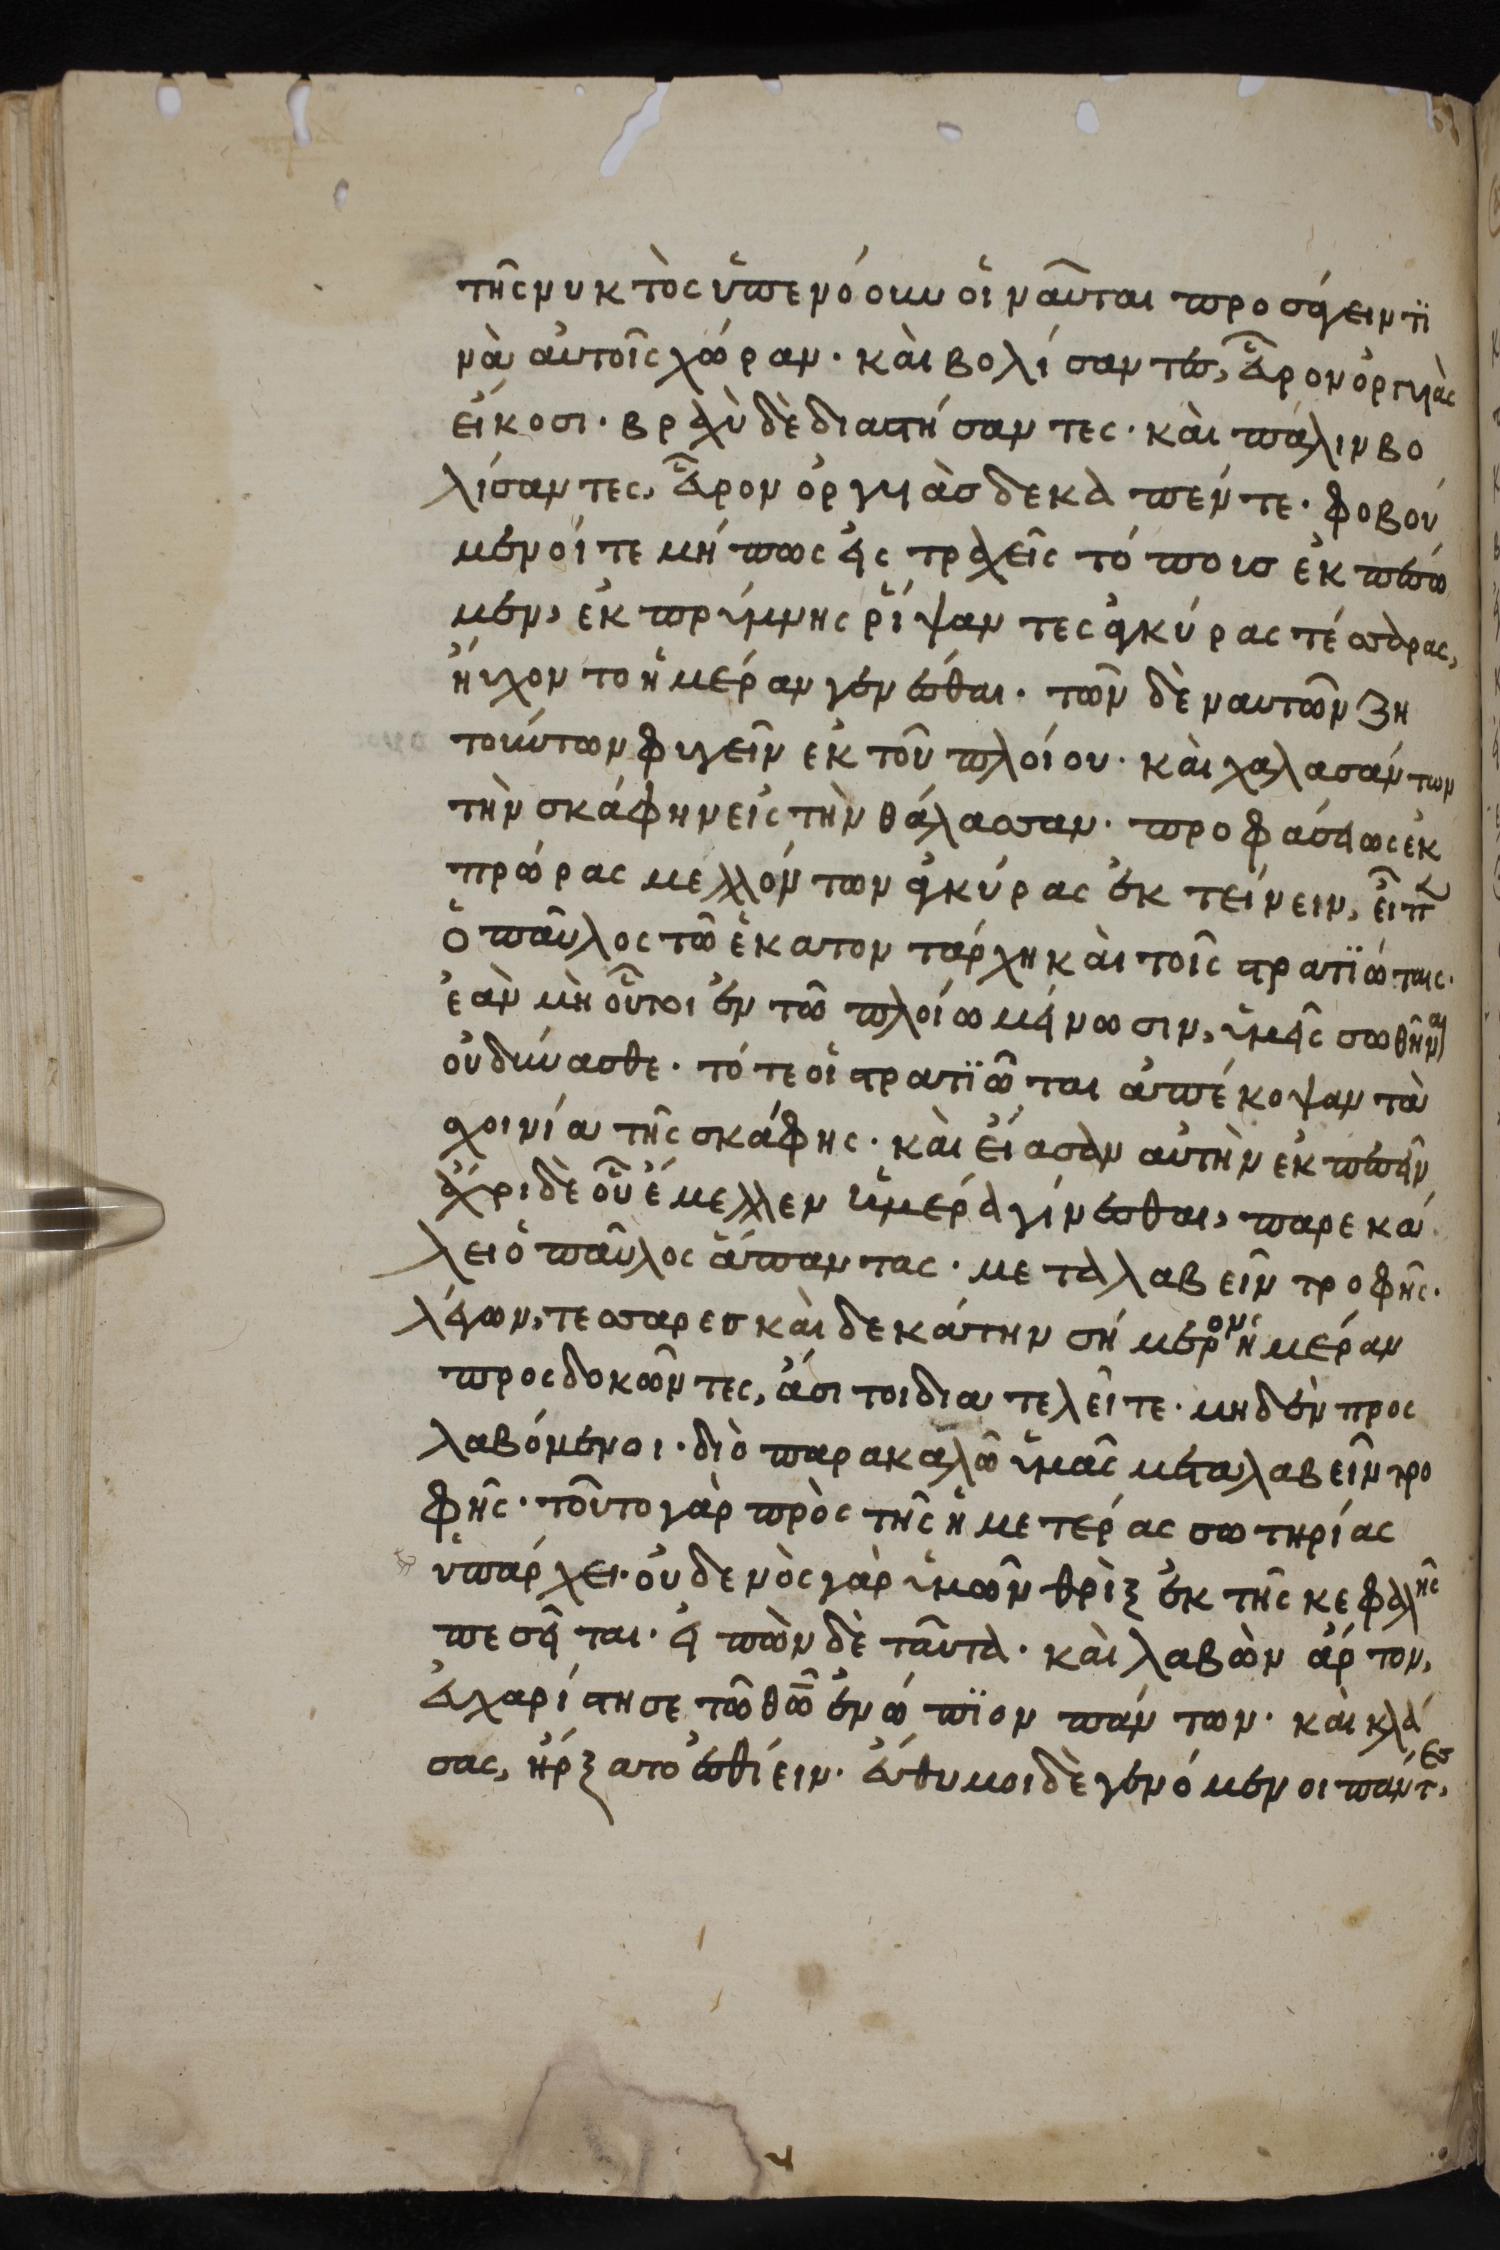 τῆς νυκτὸς ὑπενόουν οἱ ναῦται προσάγειν τϊ
νὰ αὐτοῖς χώραν· καὶ βολίσαντες, εὗρον ὀργυιὰς
εἴκοσι· βραχὺ δὲ διαστήσαντες· καὶ πάλιν βο
λίσαντες, εὗρον ὀργυιὰσ δεκαπέντε· φοβού
μενοί τε μήπως εἰς τραχεῖς τόπουσ ἐκπέσω
μεν, ἐκ πρύμνης ῥίψαντες ἀγκύρας τέσσαρας,
ηὔχοντο ἡμέραν γενέσθαι· τῶν δὲ ναυτῶν ζη
τούντων φυγεῖν ἐκ τοῦ πλοίου· καὶ χαλασάντων
τὴν σκάφην εἰς τὴν θάλασσαν· προφάσεως ἐκ
πρώρας μελλόντων ἀγκύρας ἐκτείνειν, εἶπεν
ὁ παῦλος τῶ ἑκατοντάρχη καὶ τοῖς στρατϊώταις·
ἐὰν μὴ οὗτοι ἐν τῶ πλοίω μείνωσιν, ὑμεῖς σωθῆναι
οὐ δύνασθε· τότε οἱ στρατϊῶται ἀπέκοψαν τὰ
σχοινία τῆς σκάφης· καὶ εἴασαν αὐτὴν ἐκπεσεῖν
ἄχρι δὲ οὗ ἔμελλεν ἡμέρα γίνεσθαι, παρεκά
λει ὁ παῦλος ἅπαντας· μεταλαβεῖν τροφῆς·
λέγων, τεσσαρεσκαιδεκάτην σήμερον ἡμέραν
προσδοκῶντες, ἄσιτοι διατελεῖτε· μηδὲν προς
λαβόμενοι· διὸ παρακαλῶ ὑμᾶς μεταλαβεῖν τρο
φῆς· τοῦτο γὰρ πρὸς τῆς ἡμετέρας σωτηρίας
ὑπάρχει· οὐδενὸς γὰρ ὑμῶν θρὶξ ἐκ τῆς κεφαλῆς
πεσεῖται· εἰπὼν δὲ ταῦτα· καὶ λαβὼν ἄρτον,
εὐχαρίστησε τῶ θῶ ἐνώπϊον πάντων· καὶ κλά
σας, ἤρξατο ἐσθίειν· εὔθυμοι δὲ γενόμενοι πάντες,